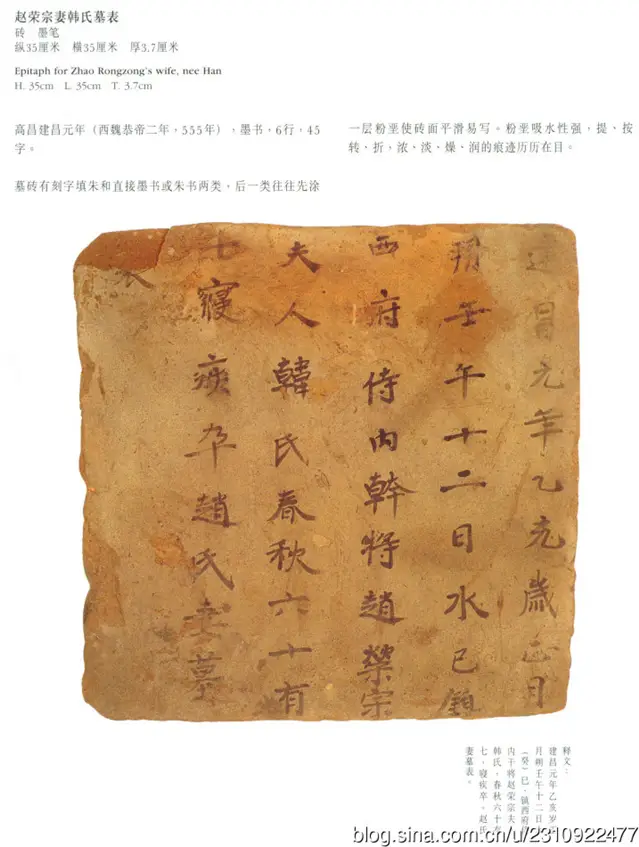 赵荣宗妻韩氏墓表
砖 墨笔
纵35厘米 横35厘米 厚3.7厘米
Epitaph for Zhao Rongzong's wife, nee Han
H. 35cm L. 35cm T. 3.7cm
高昌建昌元年（西魏恭帝二年，555年），墨书，6行，45
字。
墓砖有刻字填朱和直接墨书或朱书两类，后一类往往先涂
一层粉垩使砖面平滑易写。粉垩吸水性强，提、按
转、折，浓、淡、燥、润的痕迹历历在目。
建昌元年乙亥歲正月
朔壬午十二日水巳鎮
西府侍內幹將趙榮宗
夫人韓氏春秋六十有
七寢疾卒趙氏妻墓
表
释文：
建昌元年乙亥岁
月朔壬午十二日
（癸）巳，镇西府
内干将赵荣宗夫
韩氏，春秋六十有
七，寝疾卒。赵氏
妻墓表。
blog.sina.com.cn/u/2310922477